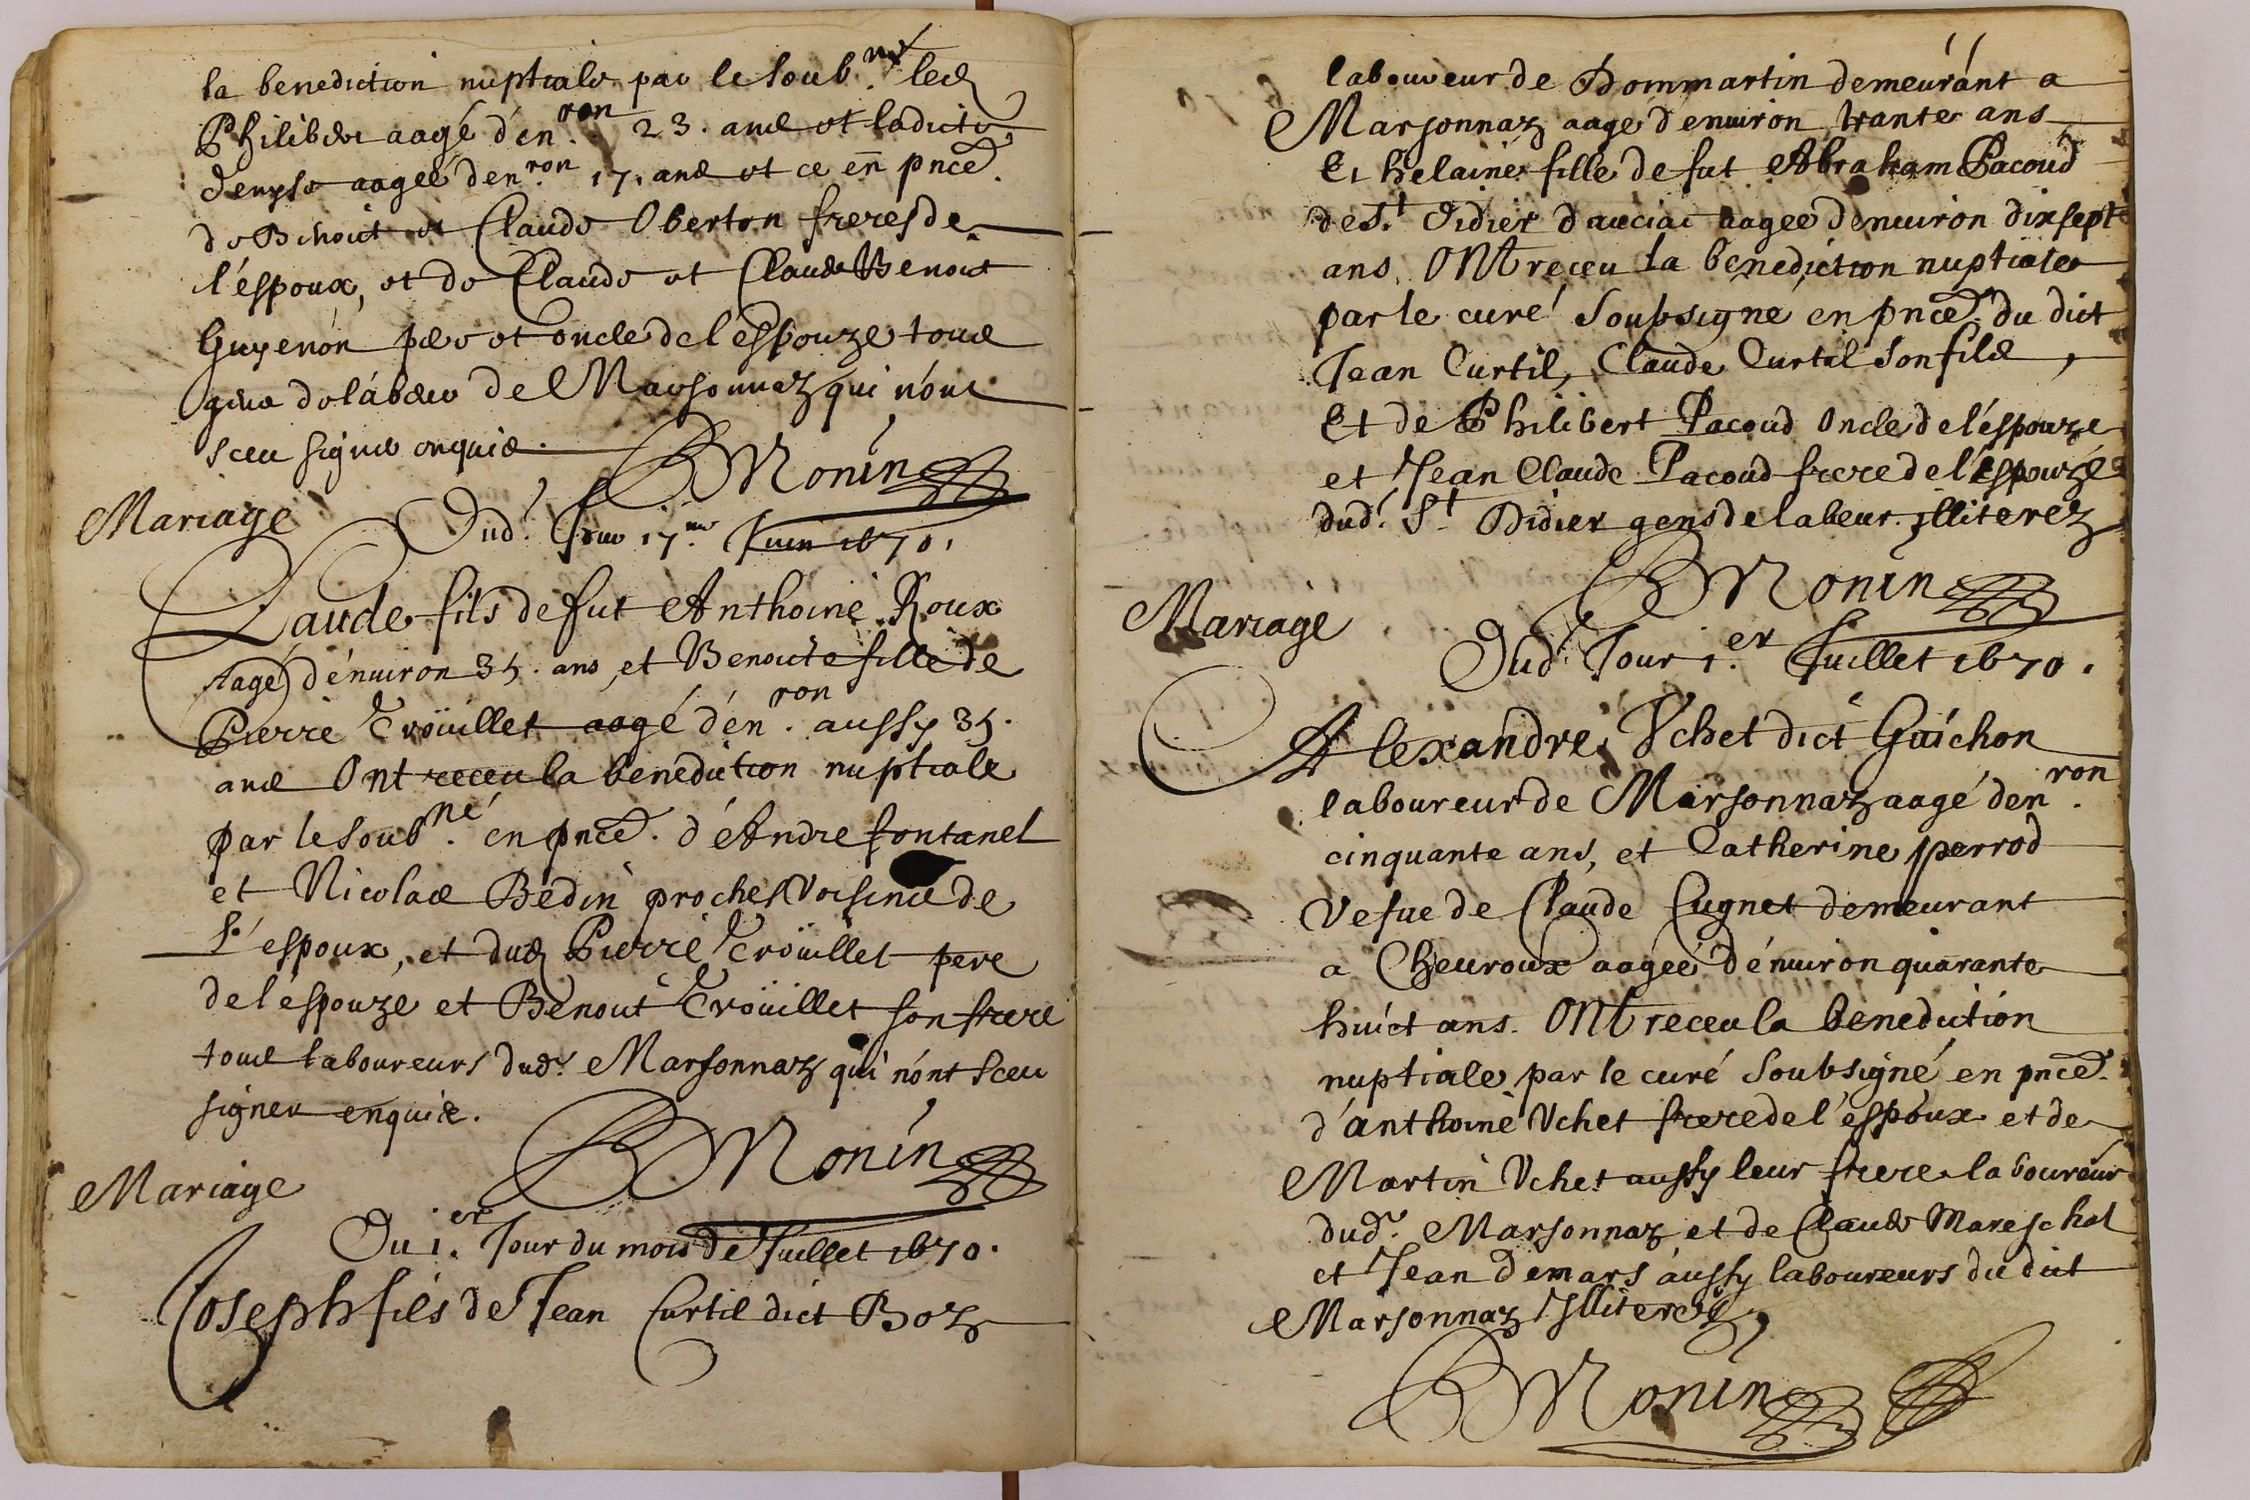 la benediction nuptiale par le soub.né led
Philibert aagé d'en.ron 23. ans et ladicte
denyse aagée d'en.ron 17. ans et ce en pnce.
de Benoict et Claude Oberton freres de
l'espoux, et de Claude et Claude Benoict
Guyenon pere et oncle de l'espouze tous
gens de labeur de Marsonnaz qui n'ont
sceu signer enquis.
BMonin
Mariage
Dud. Jour 17.me Juin 1670.
Claude fils de fut Anthoine Roux
aagé d'enuiron 35. ans, et Benoicte fille de
Pierre Troüillet aagé d'en.ron aussy 35.
ans Ont receu la benediction nuptiale
par le soub.né en pnce. d'Andre fontanel
et Nicolas Bedin proches voisins de
l'espoux, et dud Pierre Troüillet pere
de l'espouze et Benoict Troüillet son frere
tous laboureurs dud. Marsonnaz qui n'ont sceu
signer enquis.
BMonin
Mariage
Du 1.er Jour du mois de Juillet 1670.
Joseph fils de Jean Curtil dict Boz
laboureur de Dommartin demeurant a
Marsonnaz aagé d'enuiron trante ans
Et helaine fille de fut Abraham Pacoud
de St. Didier d'auciat aagee d'enuiron dixsept
ans. ONt receu la benediction nuptiale
par le curé soubsigné en pnce. du dict
Jean Curtil, Claude Curtil son fils,
Et de Philibert Pacoud Oncle de l'espouze
et Jean Claude Pacoud frere de l'espouze
dud. St. Didier gens de labeur jlliterez
BMonin
Mariage
Dud. Jour 1.er Juillet 1670.
Alexandre Vchet dict Guichon
laboureur de Marsonnaz aagé d'en.ron
cinquante ans, et Catherine perrod
Vefue de Claude Cugnet demeurant
a Cheuroux aagée d'enuiron quarante
huict ans. ONt receu la benediction
nuptiale par le curé soubsigné en pnce.
d'anthoine Vchet frere de l'espoux et de
Martin Vchet aussy leur frere laboureur
dud. Marsonnaz et de Claude Mareschal
et Jean Demars aussy laboureurs du dict
Marsonnaz Jlliterez,
BMonin